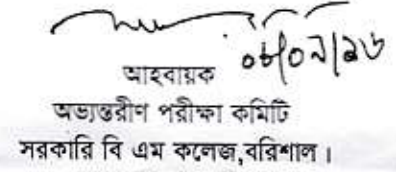 ০৮/০৯/১৬
আহবায়ক
অভ্যন্তরীণ পরীক্ষা কমিটি
সরকারি বি এম কলেজ,বরিশাল।